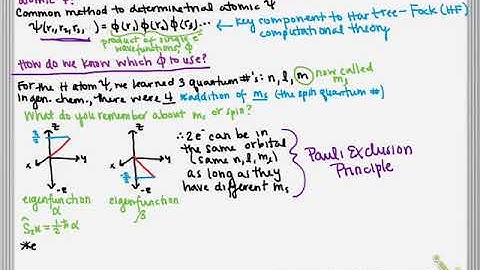 atomic Ψ:
Common method to determine trial atomic Ψ
Ψ(r₁,r₂,r₃, ) = ϕ(r₁)ϕ(r₂)ϕ(r₃)··· ← key component to Hartree-Fock (HF)
product of single e⁻
wavefunctions, ϕ
computational theory
How do we know which ϕ to use?
For the H atom Ψ, we learned 3 quantum #'s: n, l, m now called
mₗ
In gen. chem., there were 4 *addition of mₛ (the spin quantum #)
What do you remember about mₛ or spin?
z
ħ/2
x
y
-z
z
x
y
-ħ/2
-z
eigenfunction
α
eigenfunction
β
Ŝzα = ½ħα
∴ 2e⁻ can be in
the same orbital
(same n, l, mₗ)
as long as they
have different mₛ
Pauli Exclusion
Principle
*e